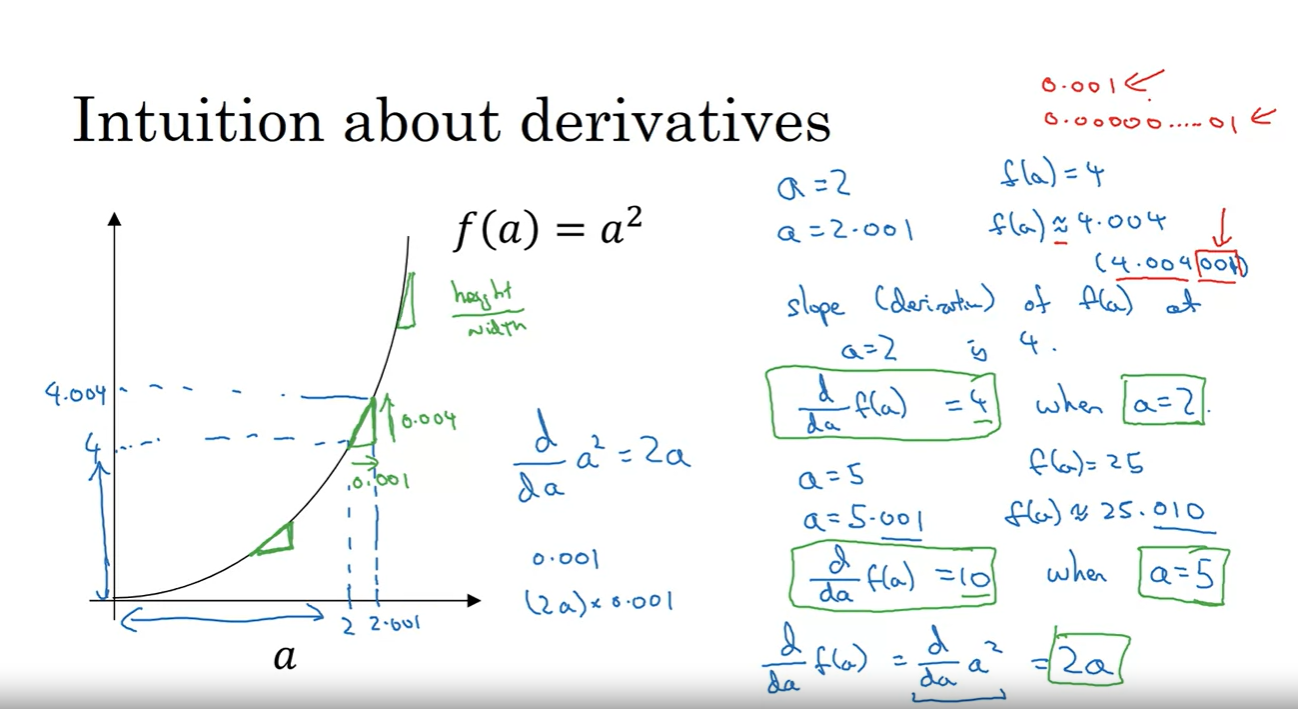 Intuition about derivatives
0.001
0.00000.....01
f(a) = a²
height
width
4.004
4
0.004
0.001
2
2.001
a
d/da a² = 2a
0.001
(2a) × 0.001
a = 2 f(a) = 4
a = 2.001 f(a) ≈ 4.004
(4.004001)
slope (derivative) of f(a) at
a=2 is 4.
d/da f(a) = 4 when a=2.
a = 5 f(a) = 25
a = 5.001 f(a) ≈ 25.010
d/da f(a) = 10 when a=5
d/da f(a) = d/da a² = 2a